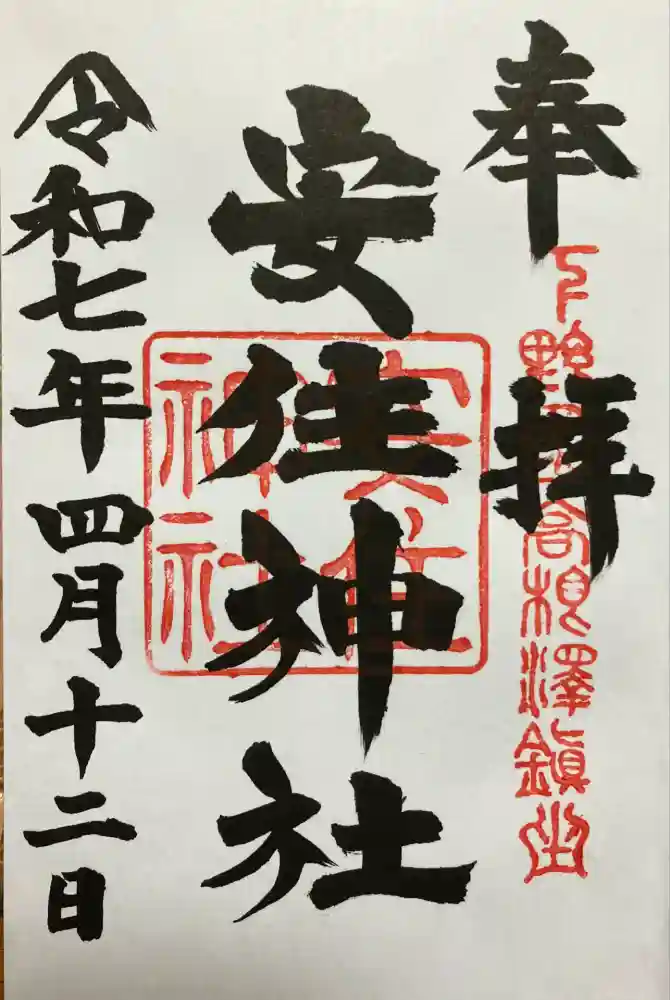 奉拝
下野 高根澤鎮坐
安住神社
安住神社
令和七年四月十二日